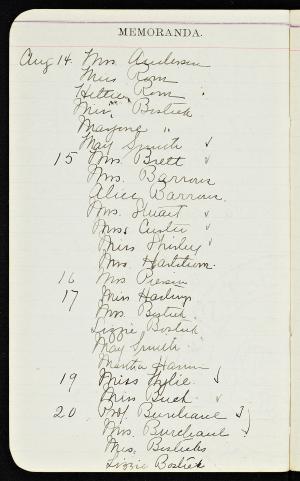 MEMORANDA.
Aug 14. Mrs. Andersen
Miss Rom
Rom
Miss Bostick
Marjorie "
May Smith ✓
15 Mrs. Brett ✓
Mrs. Barrows
Alice Barrows.
Mrs. Stuart ✓
Miss Custer ✓
Miss Shirley ✓
Mrs. Hartstrom.
16 Mrs
17 Miss
Mrs. Bostick
Lizzie Bostick
May Smith
Martha
19 Miss Wylie ✓
Miss Buck ✓
20 Burchaue ✓
Mrs. Burchaue
Mrs. Bosticks
Lizzie Bostick